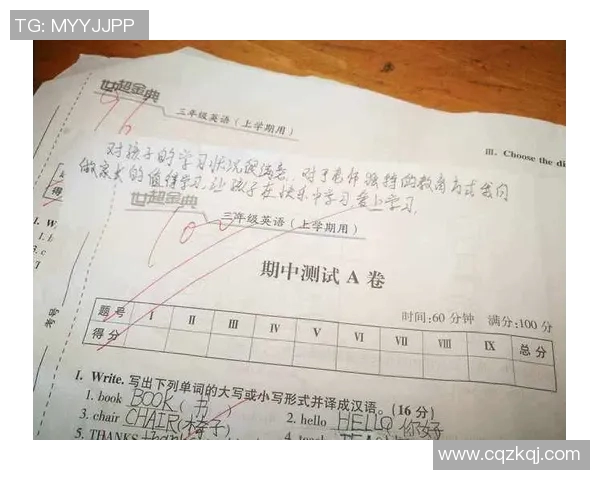 TG: MYYJJPP
世超金典
96
三年级英语(上学期用)
III. Choose the di
对孩子的学习状况很满意,对于老师独特的教育方式我们
做家长的值得学习,让孩子在快乐中学习,爱上学习.
世超金典
100
三年级英语(上学期用)
期中测试 A 卷
时间:60 分钟 满分:100 分
题号 I II III IV V VI VII VIII IX 总分
得分
考号
I. Write. 写出下列单词的大写或小写形式并译成汉语。(16 分)
1. book BOOK (书) 2. hello HELLO 你好
3. chair CHAIR (椅子)
5. THANKS thank
www.cqzkqj.com